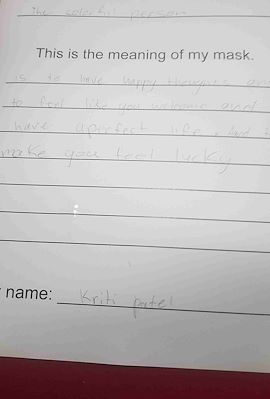 The colorful person
This is the meaning of my mask.
is to have happy thoughts an
to feel like you welcome and
have a prefect life. And
make you feel lucky
name: Kriti patel